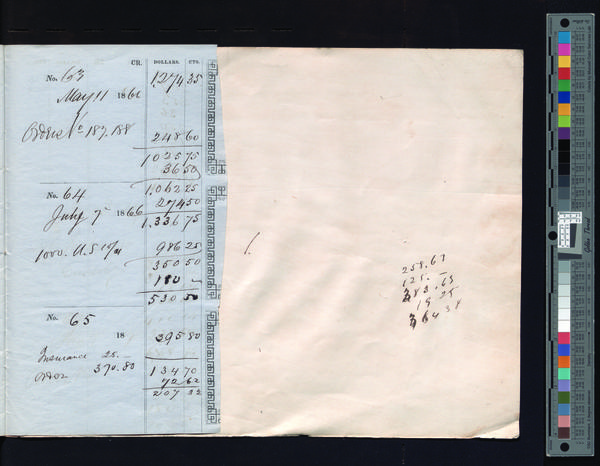 CR. DOLLARS. CTS.
No. 63 1,274 35
May 11 1866
187.188 248 60
1025 75
36 50
1,062 25
No. 64 274 50
July 7 1866 1,336 75
1000. U.S. 986 25
350 50
180
530 50
No. 65
18 395 80
Insurance 25.
370.80 134 70
72 62
207 32
258.67
125.
383.63
19 25
364 38